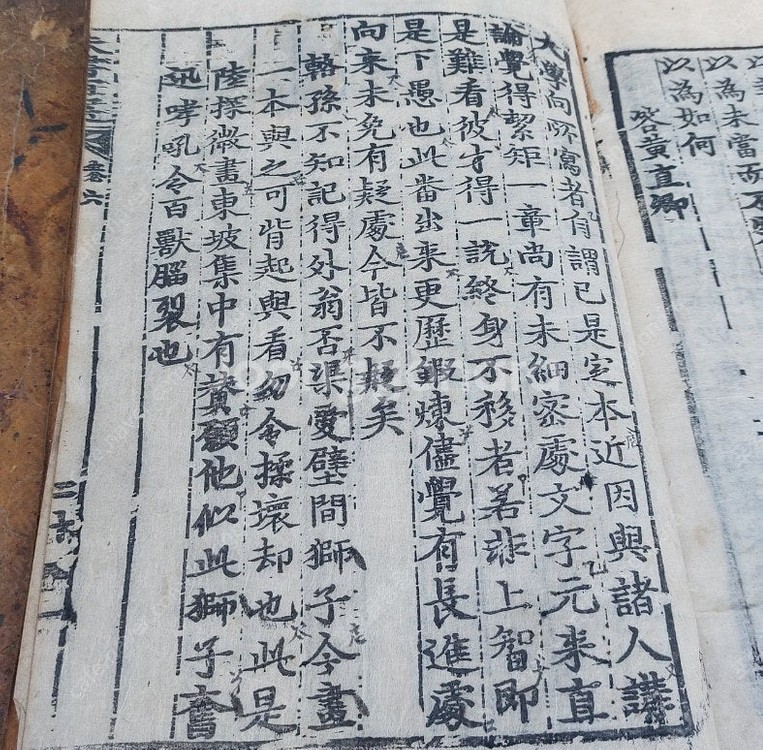 以為未當而
以為如何
答黃直卿
大學向所寫者自謂已是定本近因與諸人講
論覺得絜矩一章尚有未細密處文字元來直
是難看彼才得一說終身不移者若非上智即
是下愚也此番出來更歷鍛煉儘覺有長進處
向來未免有疑處今皆不疑矣
輅孫不知記得外翁否渠愛壁間獅子今畫
一本與之可背起與看勿令揉壞却也此是
陸探微畫東坡集中有贊願他似此獅子奮
迅哮吼令百獸腦裂也
卷六